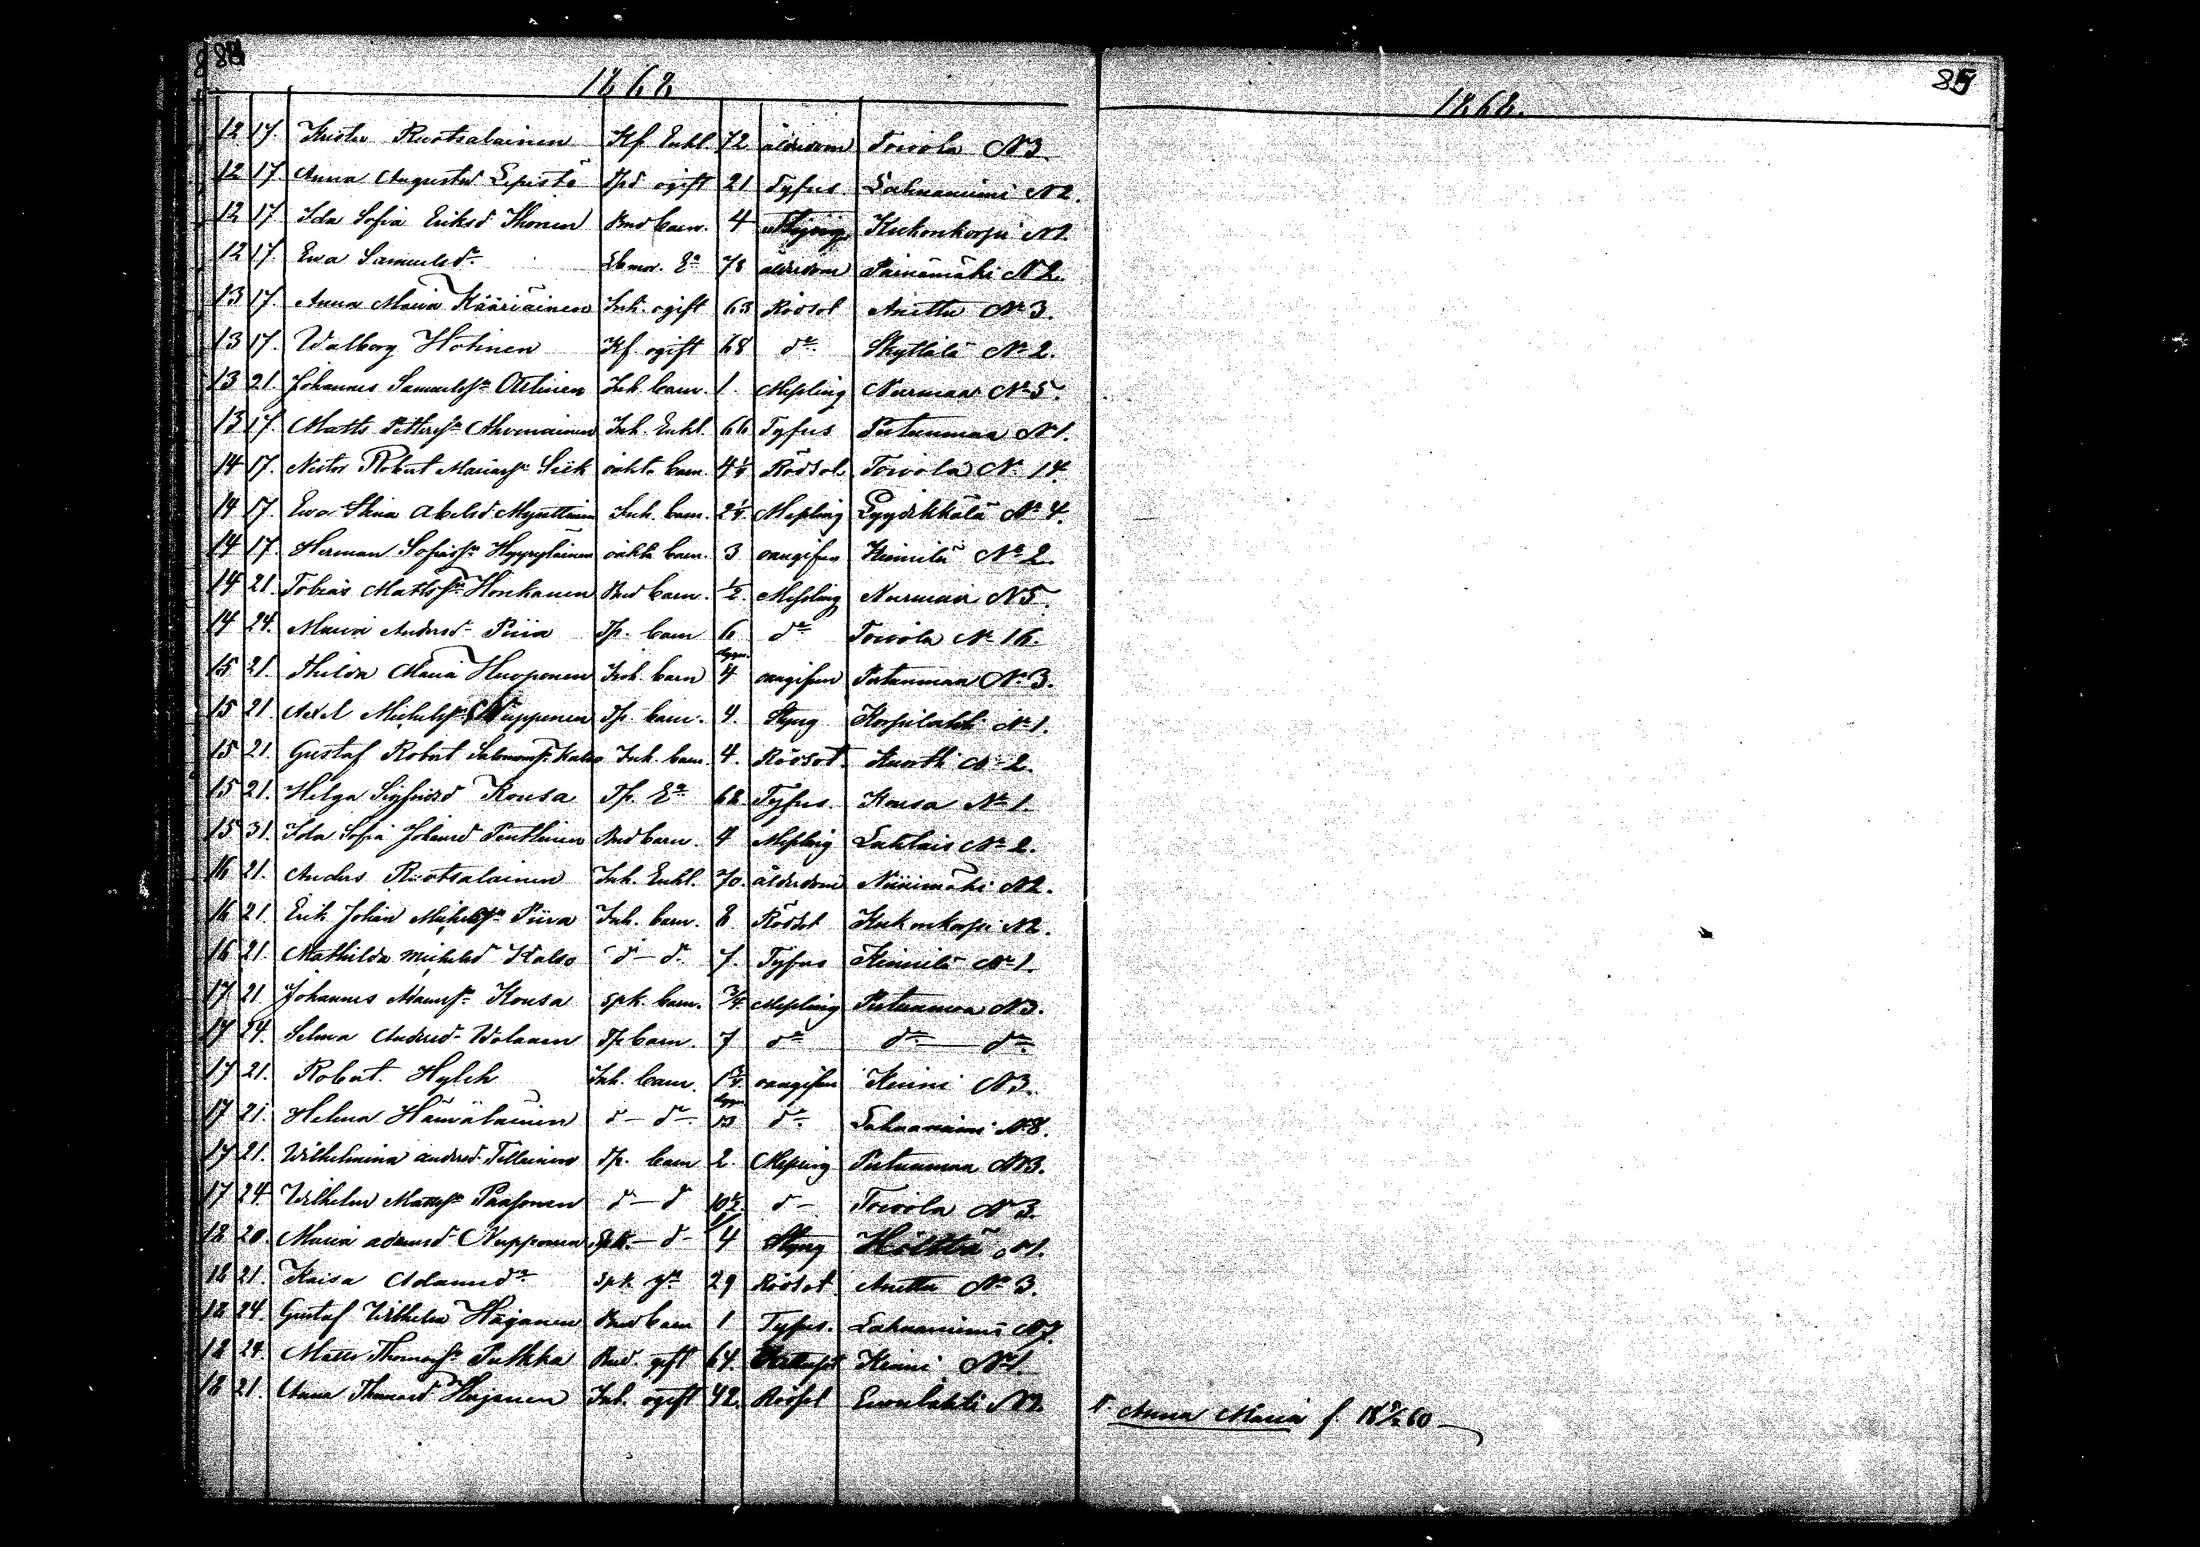 88
1868
12 17. Krister Ruotsalainen Kf Enkl. 72 ålderdom Toivola N 3
12 17. Anna Augustsd Lepistö Tpd ogift 21 Tyfus. Lahnaniemi N 2.
12 17. Ida Sofia Eriksd Ihonen Bnd barn. 4 Kukonkorpi N 1.
12 17. Ewa Samuelsd. Ea 78 ålderdom Painamäki N 2.
13 17. Anna Maria Kääriäinen Inh. ogift 63 Rödsot Anetta No 3.
13 17. Walborg Hotinen Kf. ogift 68 do Skyttälä No 2.
13 21. Johannes Samuelss. Ottinen Inh. barn. 1. Messling Nurmaa No 5.
13 17. Matts Petterss. Ahvenainen Inh. Enkl. 66 Tyfus Pertunmaa N 1.
14 17. Nestor Robert Mariass. Siik oäkta barn. 4 1/4 Rödsot Toivola No 14.
14 17. Ewa Stina Abelsd Mynttinen Inh. barn. 2 1/4 Messling Lyydikkälä No 4.
14 17. Herman Sofiass. Hyyryläinen oäkta barn. 3 oangifven Kuinilä No 2.
14 21. Tobias Mattss. Honkanen Bnd barn. 1/2. Messling Nurmaa N 5.
14 24. Maria Andersd. Piia Tp. barn 6 do Toivola No 16.
15 21. Hilda Maria Huoponen Inh. barn 4 oangifven Pertunmaa No 3.
15 21. Axel Michelss. Nupponen Tp. barn. 4. Styng Korpilahti No 1.
15 21. Gustaf Robert Salomonss. Kalso Inh. barn. 4. Rödsot. Kuorti No 2.
15 21. Helga Sigfridsd Kousa Tp. Ea 68 Tyfus. Kousa No 1.
15 31. Ida Sofia Johansd Penttinen Bnd barn. 4 Messling Lahtais No 2.
16 21. Anders Ruotsalainen Inh. Enkl. 70. ålderdom Niinimäki N 2.
16 21. Erik Johan Michelss. Piiva Inh. barn. 8 Rödsot Kukonkorpi N 2.
16 21. Mathilda Michelsd Kalso d - d. 7. Tyfus Kuinilä No 1.
17 21 Johannes Mannss. Kousa spk. barn. 3/4 Messling Pertunmaa N 3.
17 24. Selma Andersd. Wolanen Tp barn. 7 do do do
17 21. Robert Hylch Inh. barn. 1 3/4 oangifven Kinni N 3.
17 21. Helena Hämäläinen d - do do Lahnaniemi N 8.
17 21. Wilhelmina Andersd. Tillainen Tp. barn 2. Messling Pertunmaa N 3.
17 24. Wilhelm Mattss Paasonen d - d 10 1/2 d - Toivola N 3.
18 20. Maria Adamsd Nupponen Spk. - d - 4 Styng Hölttä N 1.
18 21. Kaisa Adamsd. spk. ga 29 Rödsot Anetta No 3.
18 24. Gustaf Wilhelm Häjänen Bnd barn 1 Tyfus. Lahnaniemi N 7.
18 24. Matts Thomass. Pulkka Bnd. gift 64. Kinni No 1.
18 21. Anna Thomasd Häjänen Inh. ogift 42. Rödsot N 2.
89
1868.
Anna Maria f. 60